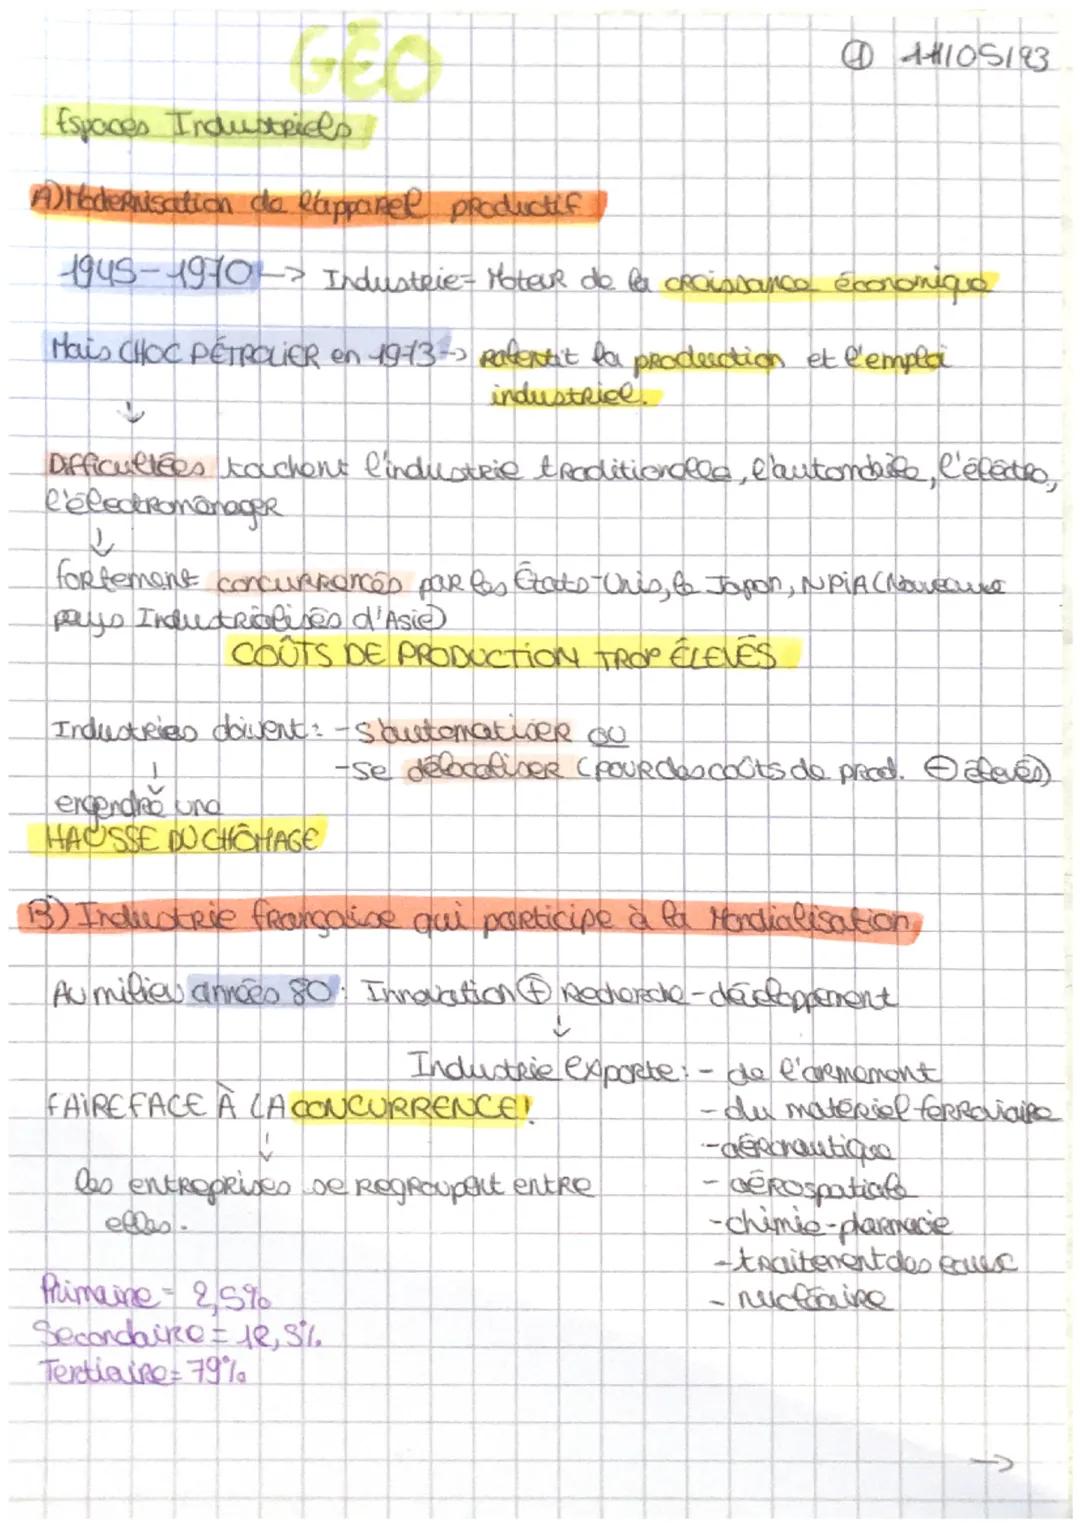 GÉO
① 11/05/23
Espaces Industriels
A) Modernisation de l'appareil productif
1945-1970 -> Industrie = Moteur de la croissance économique
Mais CHOC PÉTROLIER en 1973 -> ralentit la production et l'emploi
industriel.
↓
Difficultées touchent l'industrie traditionelle, l'automobile, l'éléctro,
l'électroménager
↓
fortement concurrencés par les États-Unis, le Japon, NPiA (Nouveaux
pays Industrialisés d'Asie)
COÛTS DE PRODUCTION TROP ÉLEVÉS
Industries doivent : - s'automatiser ou
- se délocaliser (pour des coûts de prod. ⊖ élevés)
↓
engendre une
HAUSSE DU CHÔMAGE
B) Industrie française qui participe à la Mondialisation
Au milieu années 80 : Innovation ⊕ Recherche-développement
↓
Industrie exporte : - de l'armement
FAIRE FACE À LA CONCURRENCE!
- du matériel ferroviaire
- aéronautique
↓
les entreprises se regroupent entre
- aérospatiale
elles.
- chimie-pharmacie
- traitement des eaux
- nucléaire
Primaire = 2,5%
Secondaire = 18,5%
Tertiaire = 79%
->